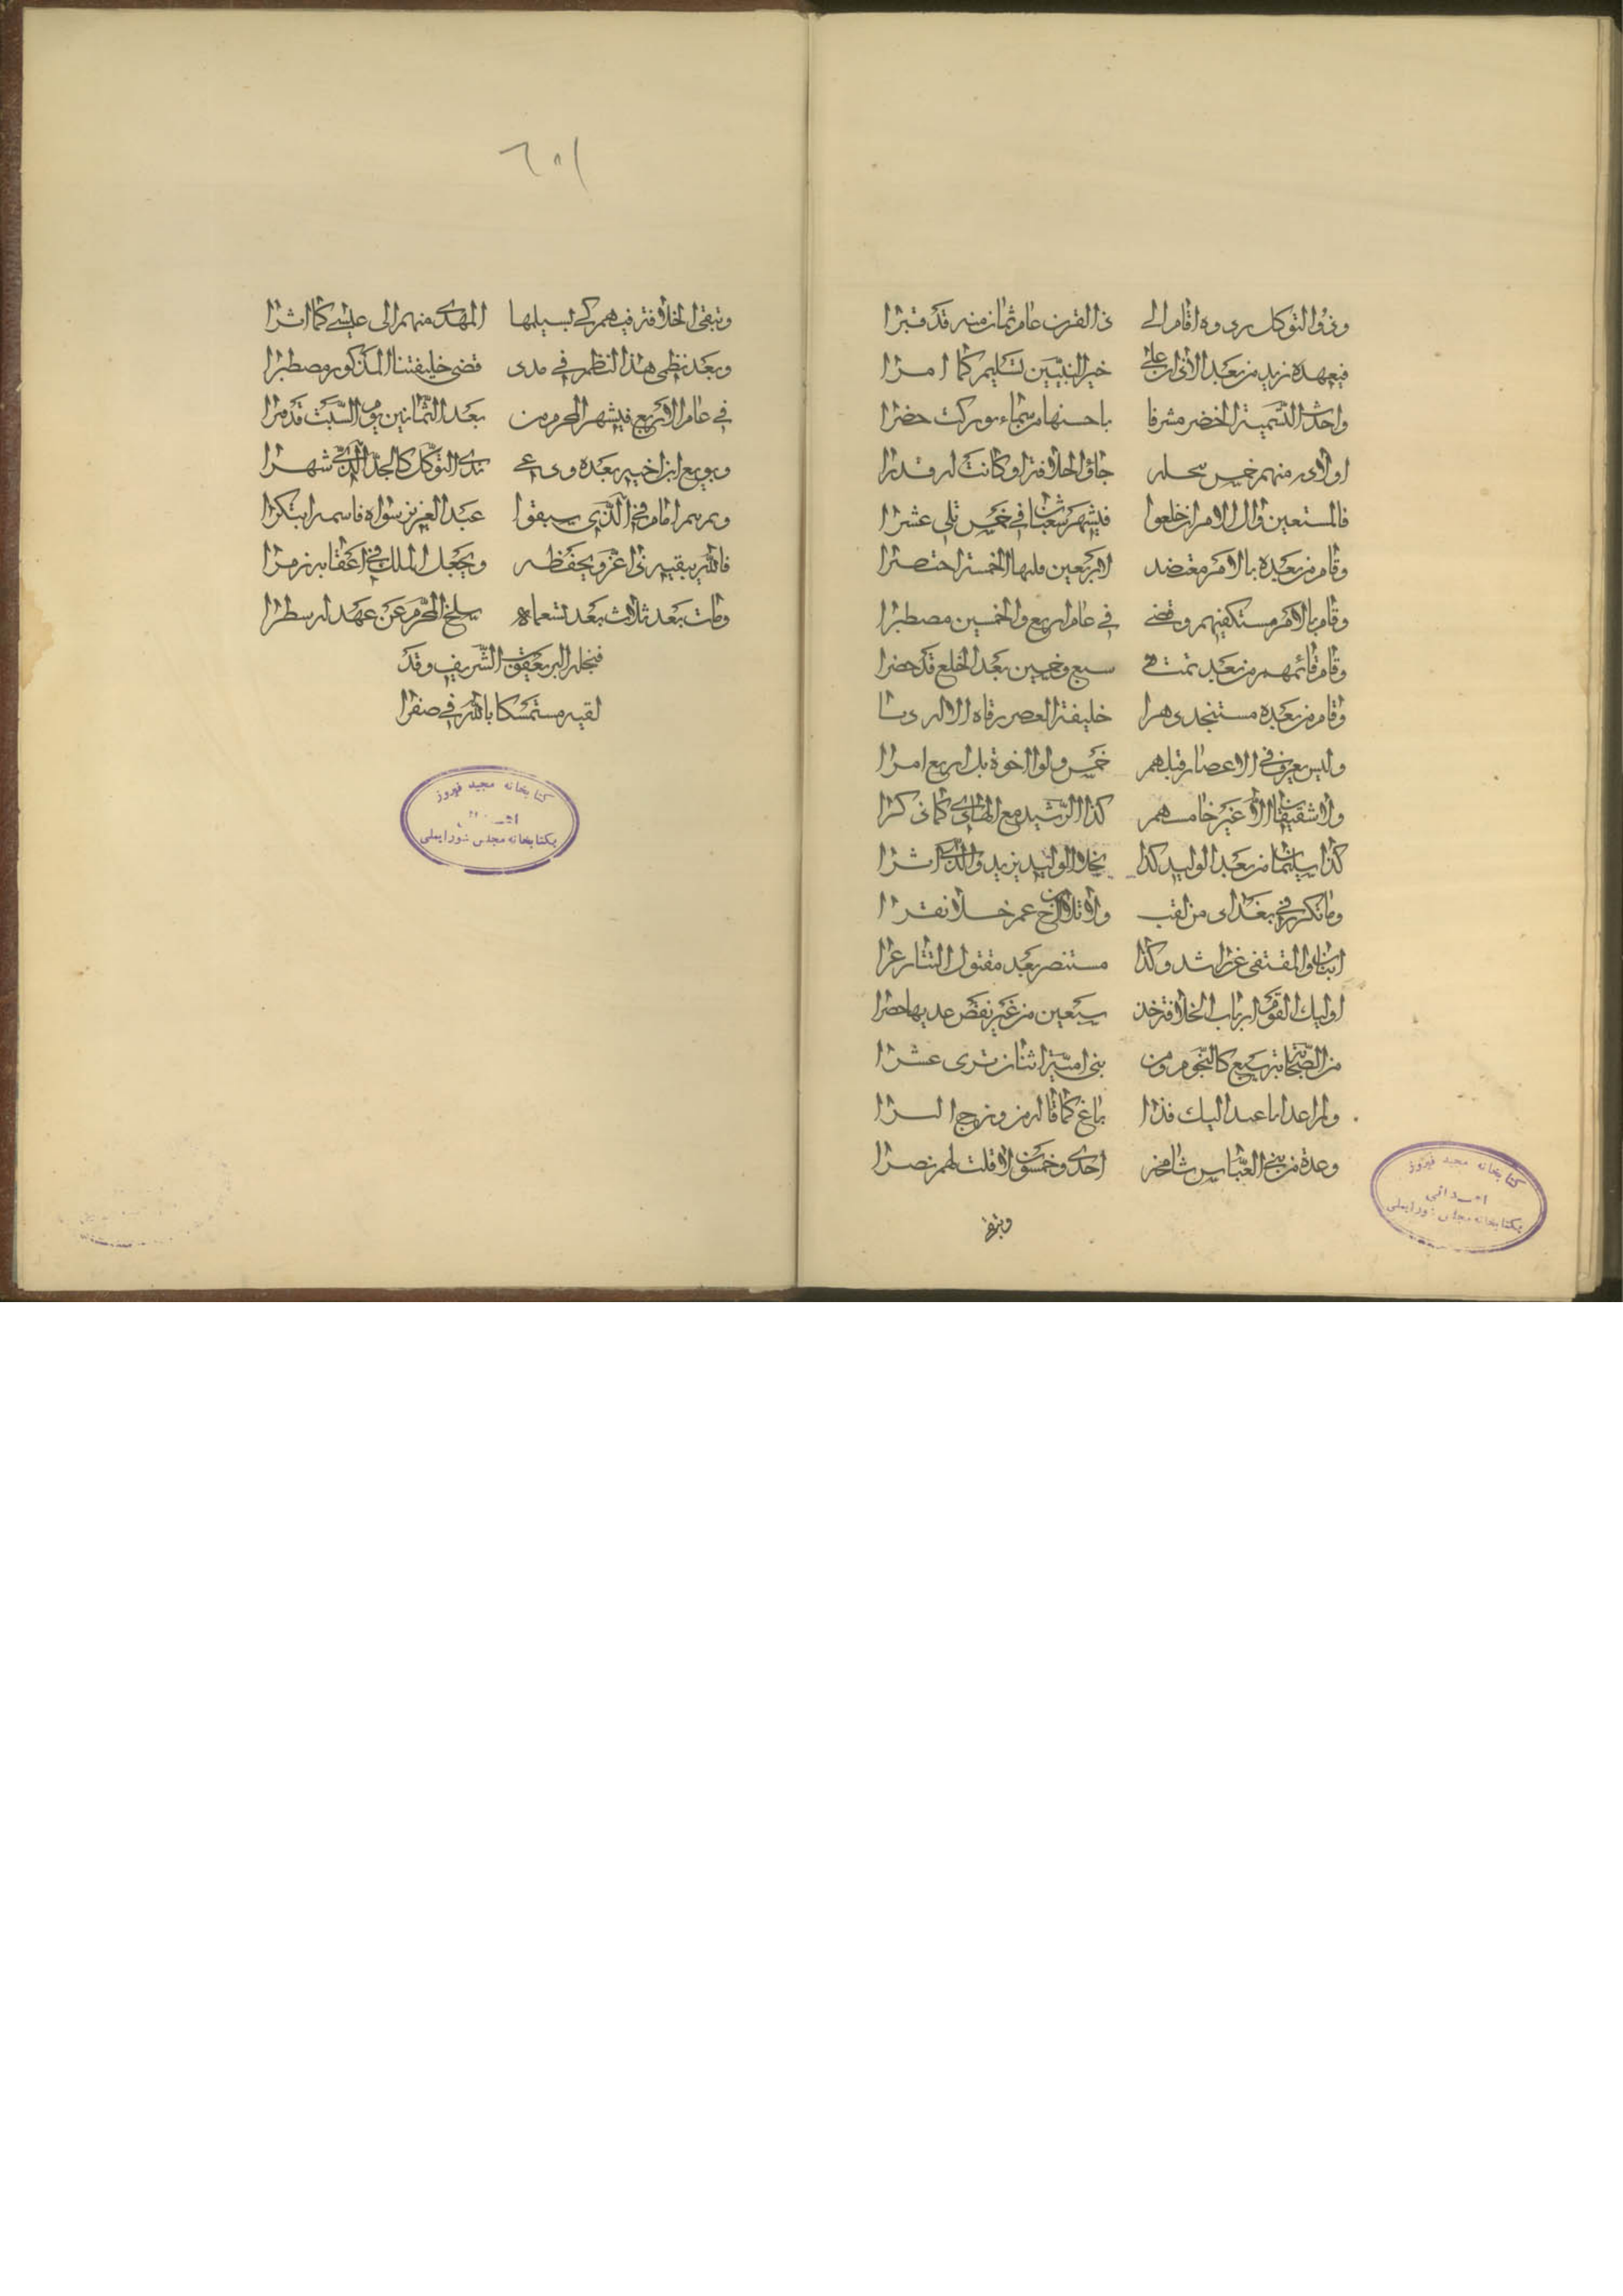 وذو التوكل ردوه اقام الى ذا القرن عام ثمان منه قد قبرا
فيعهده زيد من بعد الاذان على خير النبيين تسليم كما امرا
واحدث السمة الخضر مشرفا باحسنها من سماء بوركت حضرا
اولاد منهم خمس نجله جاؤا الخلافة او كانت له قدرا
فالمستعين وال الامر ان خلعوا فيشهر شعبان في خمس تلي عشرا
وقام من بعده بالامر معتضد لاربعين مليها الخمسة احتصرا
وقام بالامر مستكفيهم وقضى في عام اربع والخمسين مصطبرا
وقام قائمهم من بعد تمت في سبع وخمسين بعد الخلع قد حضرا
وقام من بعده مستنجد دهرا خليفة العصر رقاه الاله ذرا
وليس يعرف في الاعصار قبلهم خمس ولوا اخوة بل اربع امرا
ولا شقيقان الا غير خامسهم كذا الرشيد مع الهادي كما ذكرا
كذا سليمان من بعد الوليد كذا نجلا الوليد يزيد والذي اثرا
وما تكرر في بغداد من لقب ولا تلا ابن اخ عم خلا نفرا
اثنان والمقتفى عن راشد وكذا مستنصر بعد مقتول التتار عرا
اوليك القوم ارباب الخلافة خذ سبعين من غير نقص عديها حصرا
من الصحابة سبع كالنجوم ومن بني امية اثنان ترى عشرا
ولم اعد ابا عبد المليك فذا باغ كما قاله من ورج السرا
وعدة من بني العباس شامخة احدى وخمسون لا قلت لهم نصرا
وتبقى
١٥٦
وتبقى الخلافة فيهم كي يسلمها المهدي منهم الى عيسى كما اثرا
وبعد نظمي هذا النظم في مدى قضى خليفتنا المذكور مصطبرا
في عام الاربع فيشهر المحرم من بعد الثمانين يوم السبت قد مرا
وبويع ابن اخيه بعده ودعي بذي التوكل كالجد الذي شهرا
ولم يم امام في الذي سبقوا عبد العزيز سواه فاسمه ابتكرا
فالله يبقيه ذا عز ويحفظه ويجعل الملك في اعقابه زمرا
ومات بعد ثلاث بعد تسعمائة سلخ المحرم عن عهد له سطرا
فنجله البر يعقوب الشريف وقد
لقبه مستمسكا بالله في صفرا
كتابخانه مجيد فيروز
بكتابخانه مجلس شورايملى
كتابخانه مجيد فيروز
اهدائى
بكتابخانه مجلس شورايملى